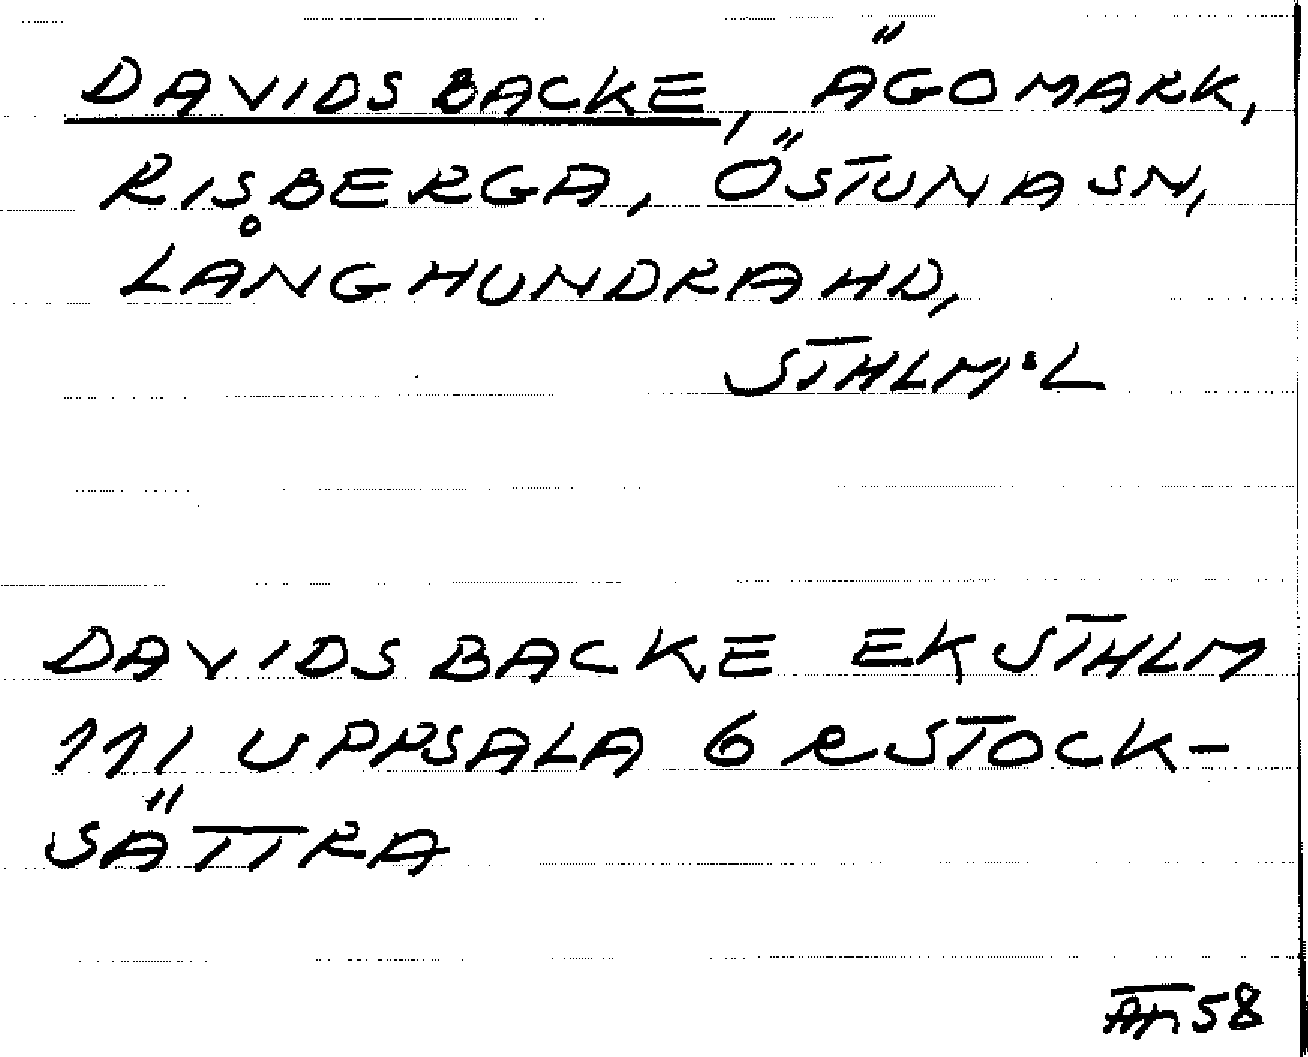 DAVIDSBACKE, ÄGOMARK,
RISBERGA, ÖSTUNA SN,
LÅNGHUNDRA HD,
STHLM:L
DAVIDSBACKE EK STHLM
111 UPPSALA 6 e STOCK-
SÄTTRA
58